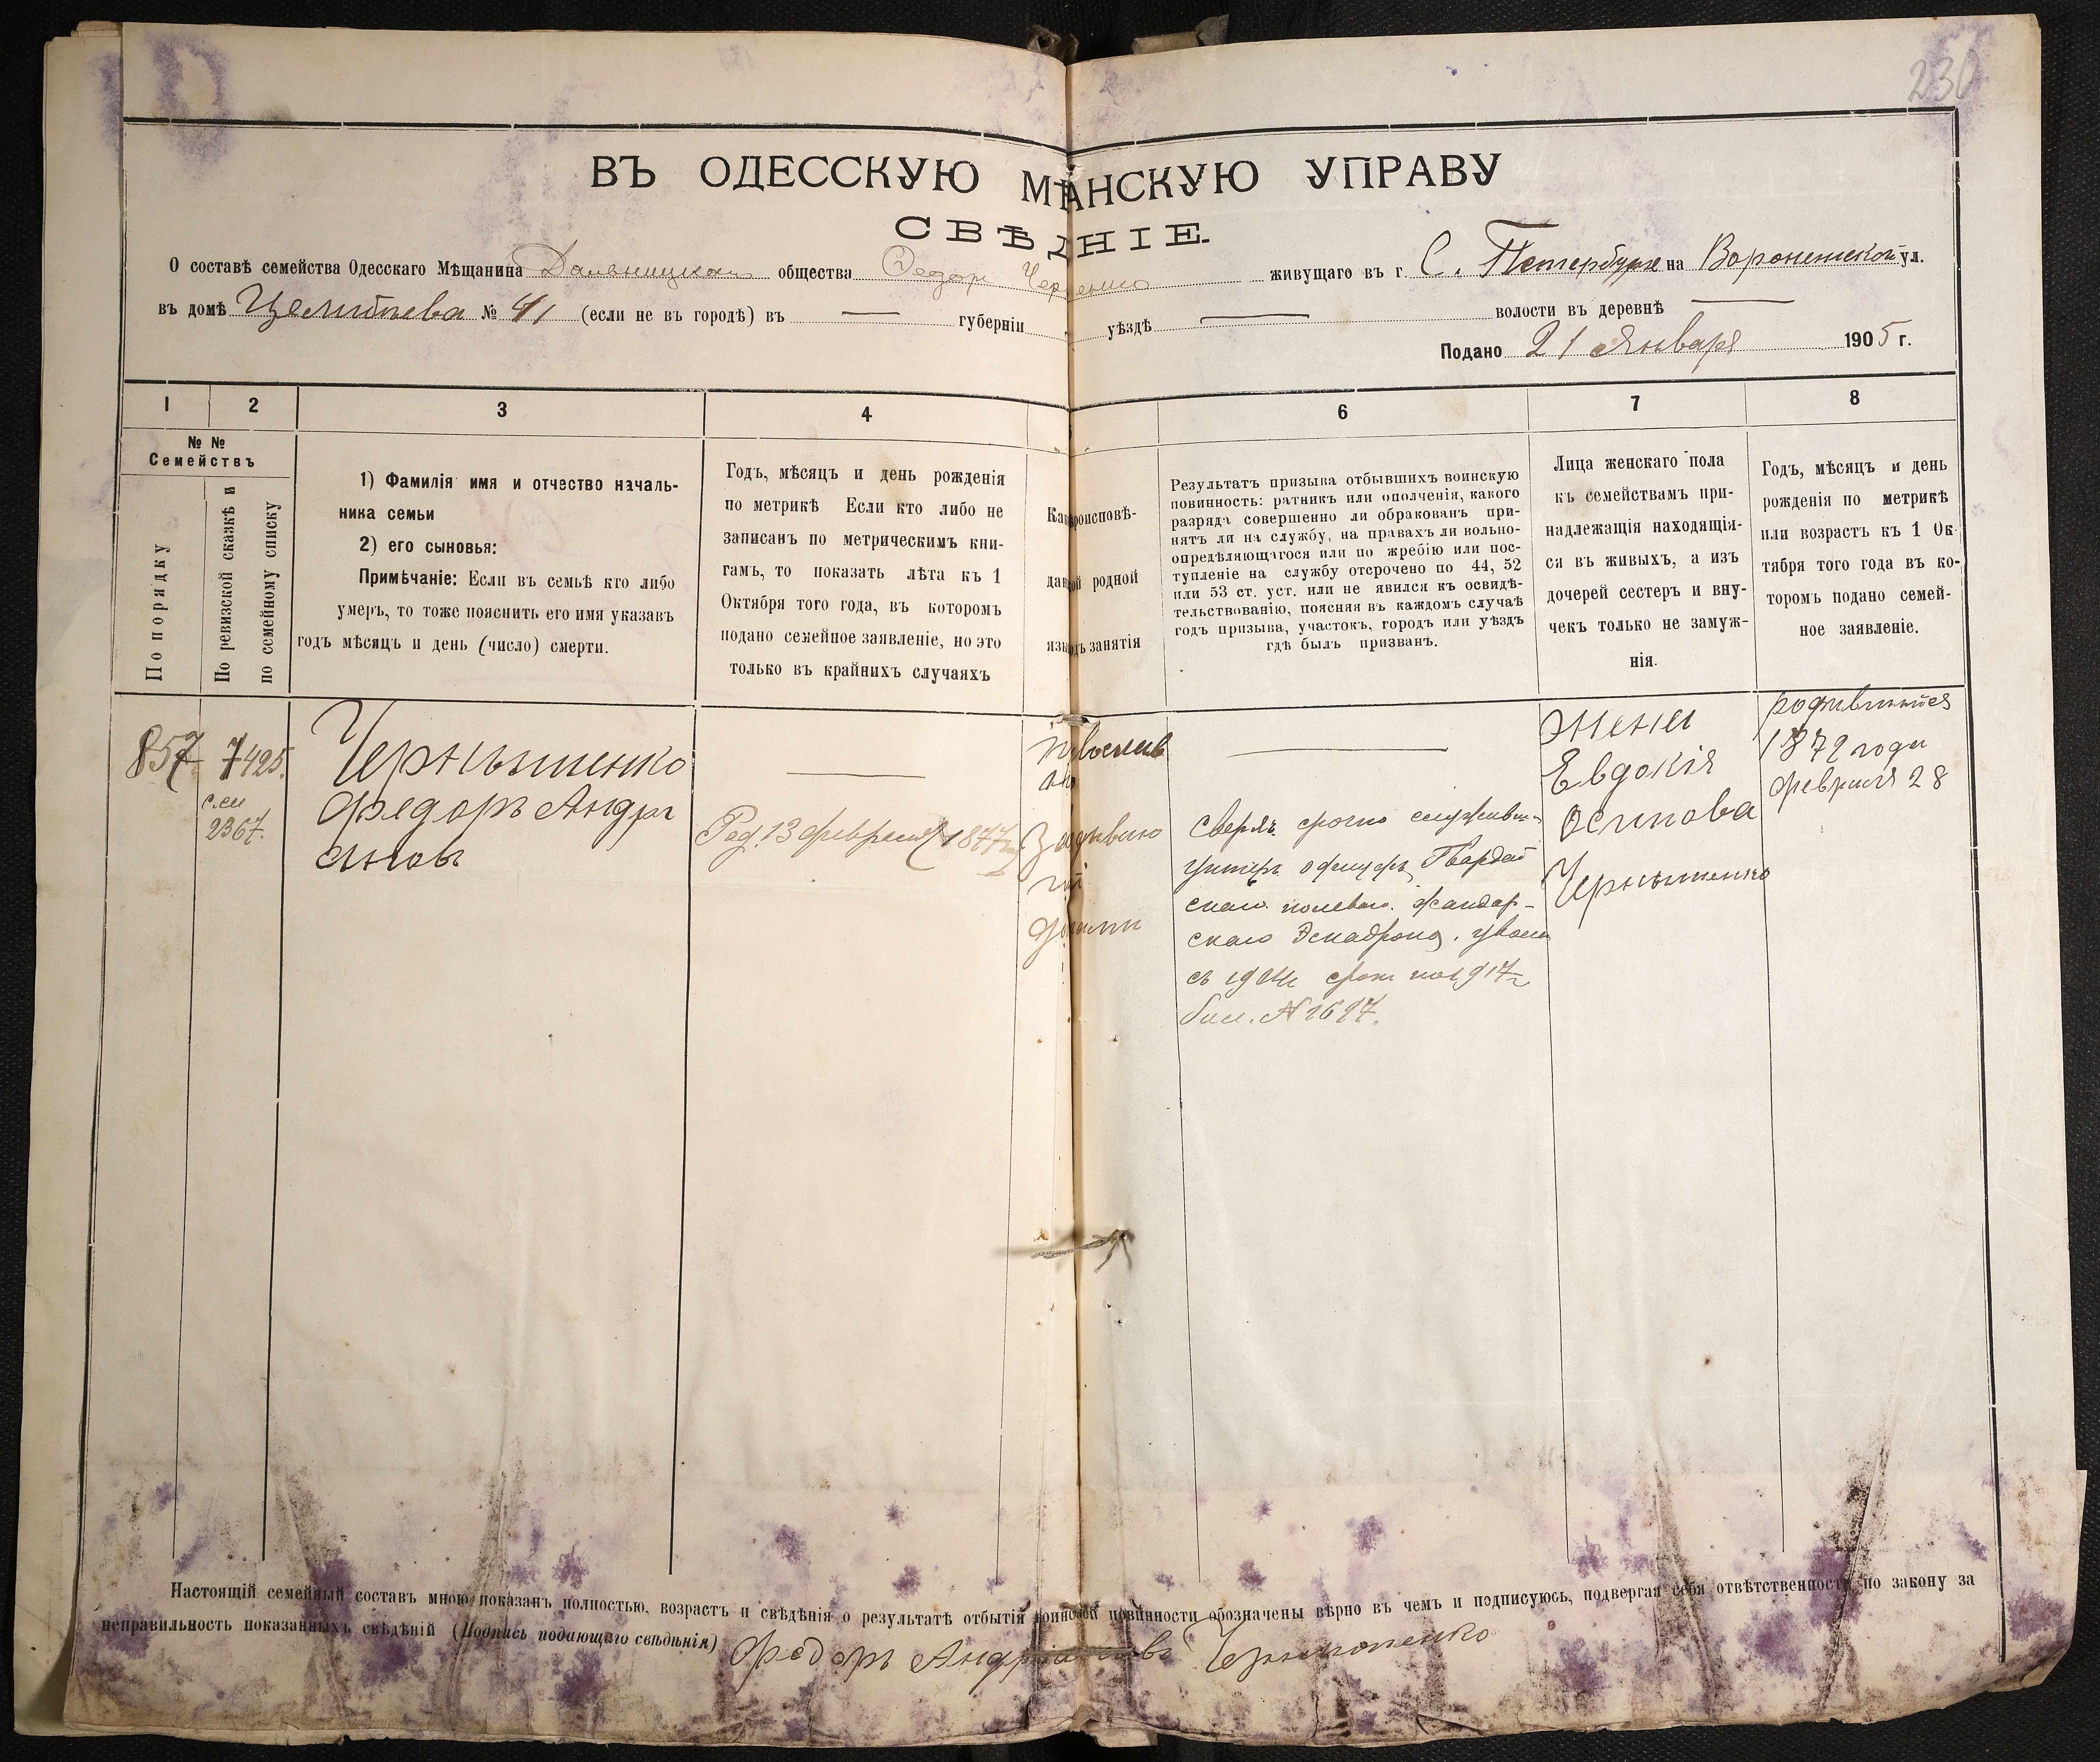 230
ВЪ ОДЕССКУЮ МѢЩАНСКУЮ УПРАВУ
СВѢДѢНІЕ.
О составѣ семейства Одесскаго Мѣщанина Дальницкаго общества Федоръ живущаго въ г. С. Петербургѣ на Воронежской ул.
въ домѣ № 41 (если не въ городѣ) въ — губерніи уѣздѣ — волости въ деревнѣ —
Подано 21 Января 1905 г.
1 2 3 4 6 7 8
№ № Семействъ
По порядку
По ревизской сказкѣ и по семейному списку
1) Фамилія имя и отчество началь-
ника семьи
2) его сыновья:
Примѣчаніе: Если въ семьѣ кто либо
умеръ, то тоже пояснить его имя указавъ
годъ мѣсяцъ и день (число) смерти.
Годъ, мѣсяцъ и день рожденія
по метрикѣ Если кто либо не
записанъ по метрическимъ кни-
гамъ, то показать лѣта къ 1
Октября того года, въ которомъ
подано семейное заявленіе, но это
только въ крайнихъ случаяхъ
роисповѣ-
родной
занятія
Результатъ призыва отбывшихъ воинскую
повинность: ратникъ или ополченія, какого
разряда совершенно ли обракованъ при-
нятъ ли на службу, на правахъ ли вольно-
опредѣляющагося или по жребію или пос-
тупленіе на службу отсрочено по 44, 52
или 53 ст. уст. или не явился къ освидѣ-
тельствованію, поясняя въ каждомъ случаѣ
годъ призыва, участокъ, городъ или уѣздъ
гдѣ былъ призванъ.
Лица женскаго пола
къ семействамъ при-
надлежащія находящія-
ся въ живыхъ, а изъ
дочерей сестеръ и вну-
чекъ только не замуж-
нія.
Годъ, мѣсяцъ и день
рожденія по метрикѣ
или возрастъ къ 1 Ок-
тября того года въ ко-
торомъ подано семей-
ное заявленіе.
857 7425.
2367.
Чернышенко
Федоръ Андрі
ановъ
—
Род. 13 февраля 1877
—
сверхъ срочно служивш
унтеръ офицеръ Гвардей
скаго полеваго жандар-
скаго Эскадрона,
бил. № 1697.
жена
Евдокія
Осипова
Чернышенко
родившійся
1872 года
февраля 28
Настоящій семейный составъ мною показанъ полностью, возрастъ и свѣдѣнія о результатѣ отбытія воинской повинности обозначены вѣрно въ чемъ и подписуюсь, подвергая себя отвѣтственности по закону за
неправильность показанныхъ свѣдѣній (Подпись подающаго свѣдѣнія) Федоръ Чернышенко